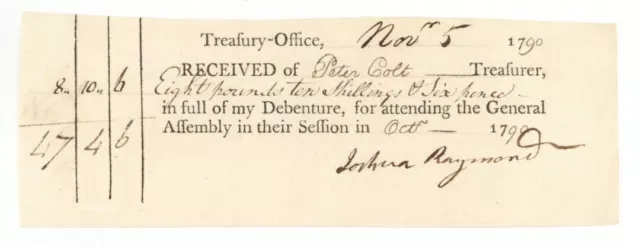 Treasury-Office, Novr 5 1790
RECEIVED of Peter Colt Treasurer,
8 10 6 Eight pounds ten Shillings & Six pence
in full of my Debenture, for attending the General
47 4 6 Assembly in their Session in Octr 1790
Joshua Raymond